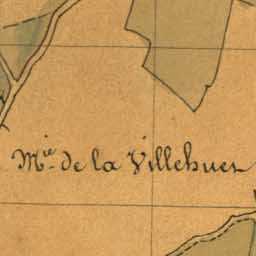 Mie de la Villehuet